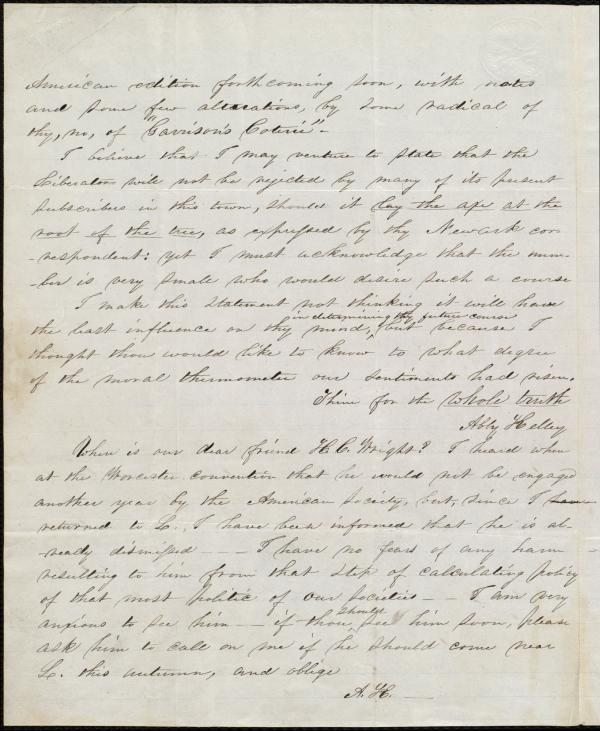 American edition forthcoming soon, with notes
and some few alterations, by some radical of
thy, no, of "Garrison's Coterie"-
I believe that I may venture to state that the
Liberator will not be rejected by many of its present
subscribers in this town, should it lay the axe at the
root of the tree, as expressed by thy Newark cor
-respondent: yet I must acknowledge that the num-
ber is very small who would desire such a course
I make this statement not thinking it will have
in determining thy future course
the least influence on thy mind, but because I
thought thou would like to know to what degree
of the moral thermometer our sentiments had risen.
Thine for the whole truth
Abby Kelley
Where is our dear friend H. C. Wright? I heard when
at the Worcester convention that he would not be engaged
another year by the American Society, but, since I have
returned to L. I have been informed that he is al-
-ready dismissed - - - I have no fears of any harm
resulting to him from that step of calculating policy
of that most politic of our societies - - I am very
anxious to see him - - if thou should see him soon, please
ask him to call on me if he should come near
L. this autumn, and oblige
A. K. —